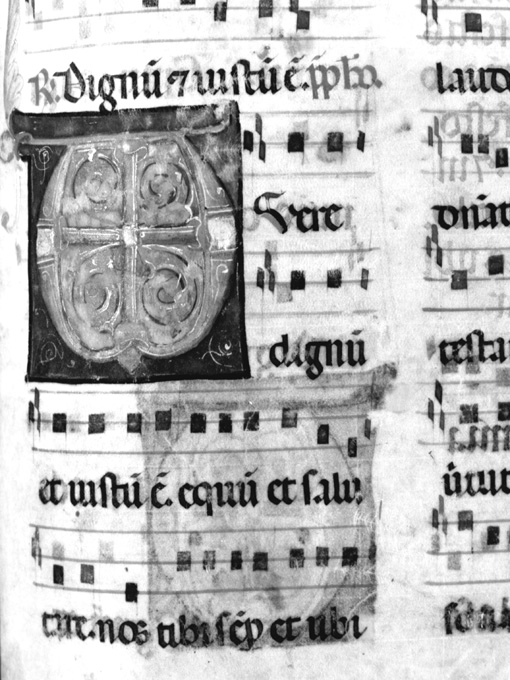 R. Dignū ⁊ iustū ē. pp hō.
Vere
dignū
et iustū ē. equū et salu
tare. nos tibi sēp et ubi
laud
onāt
testa